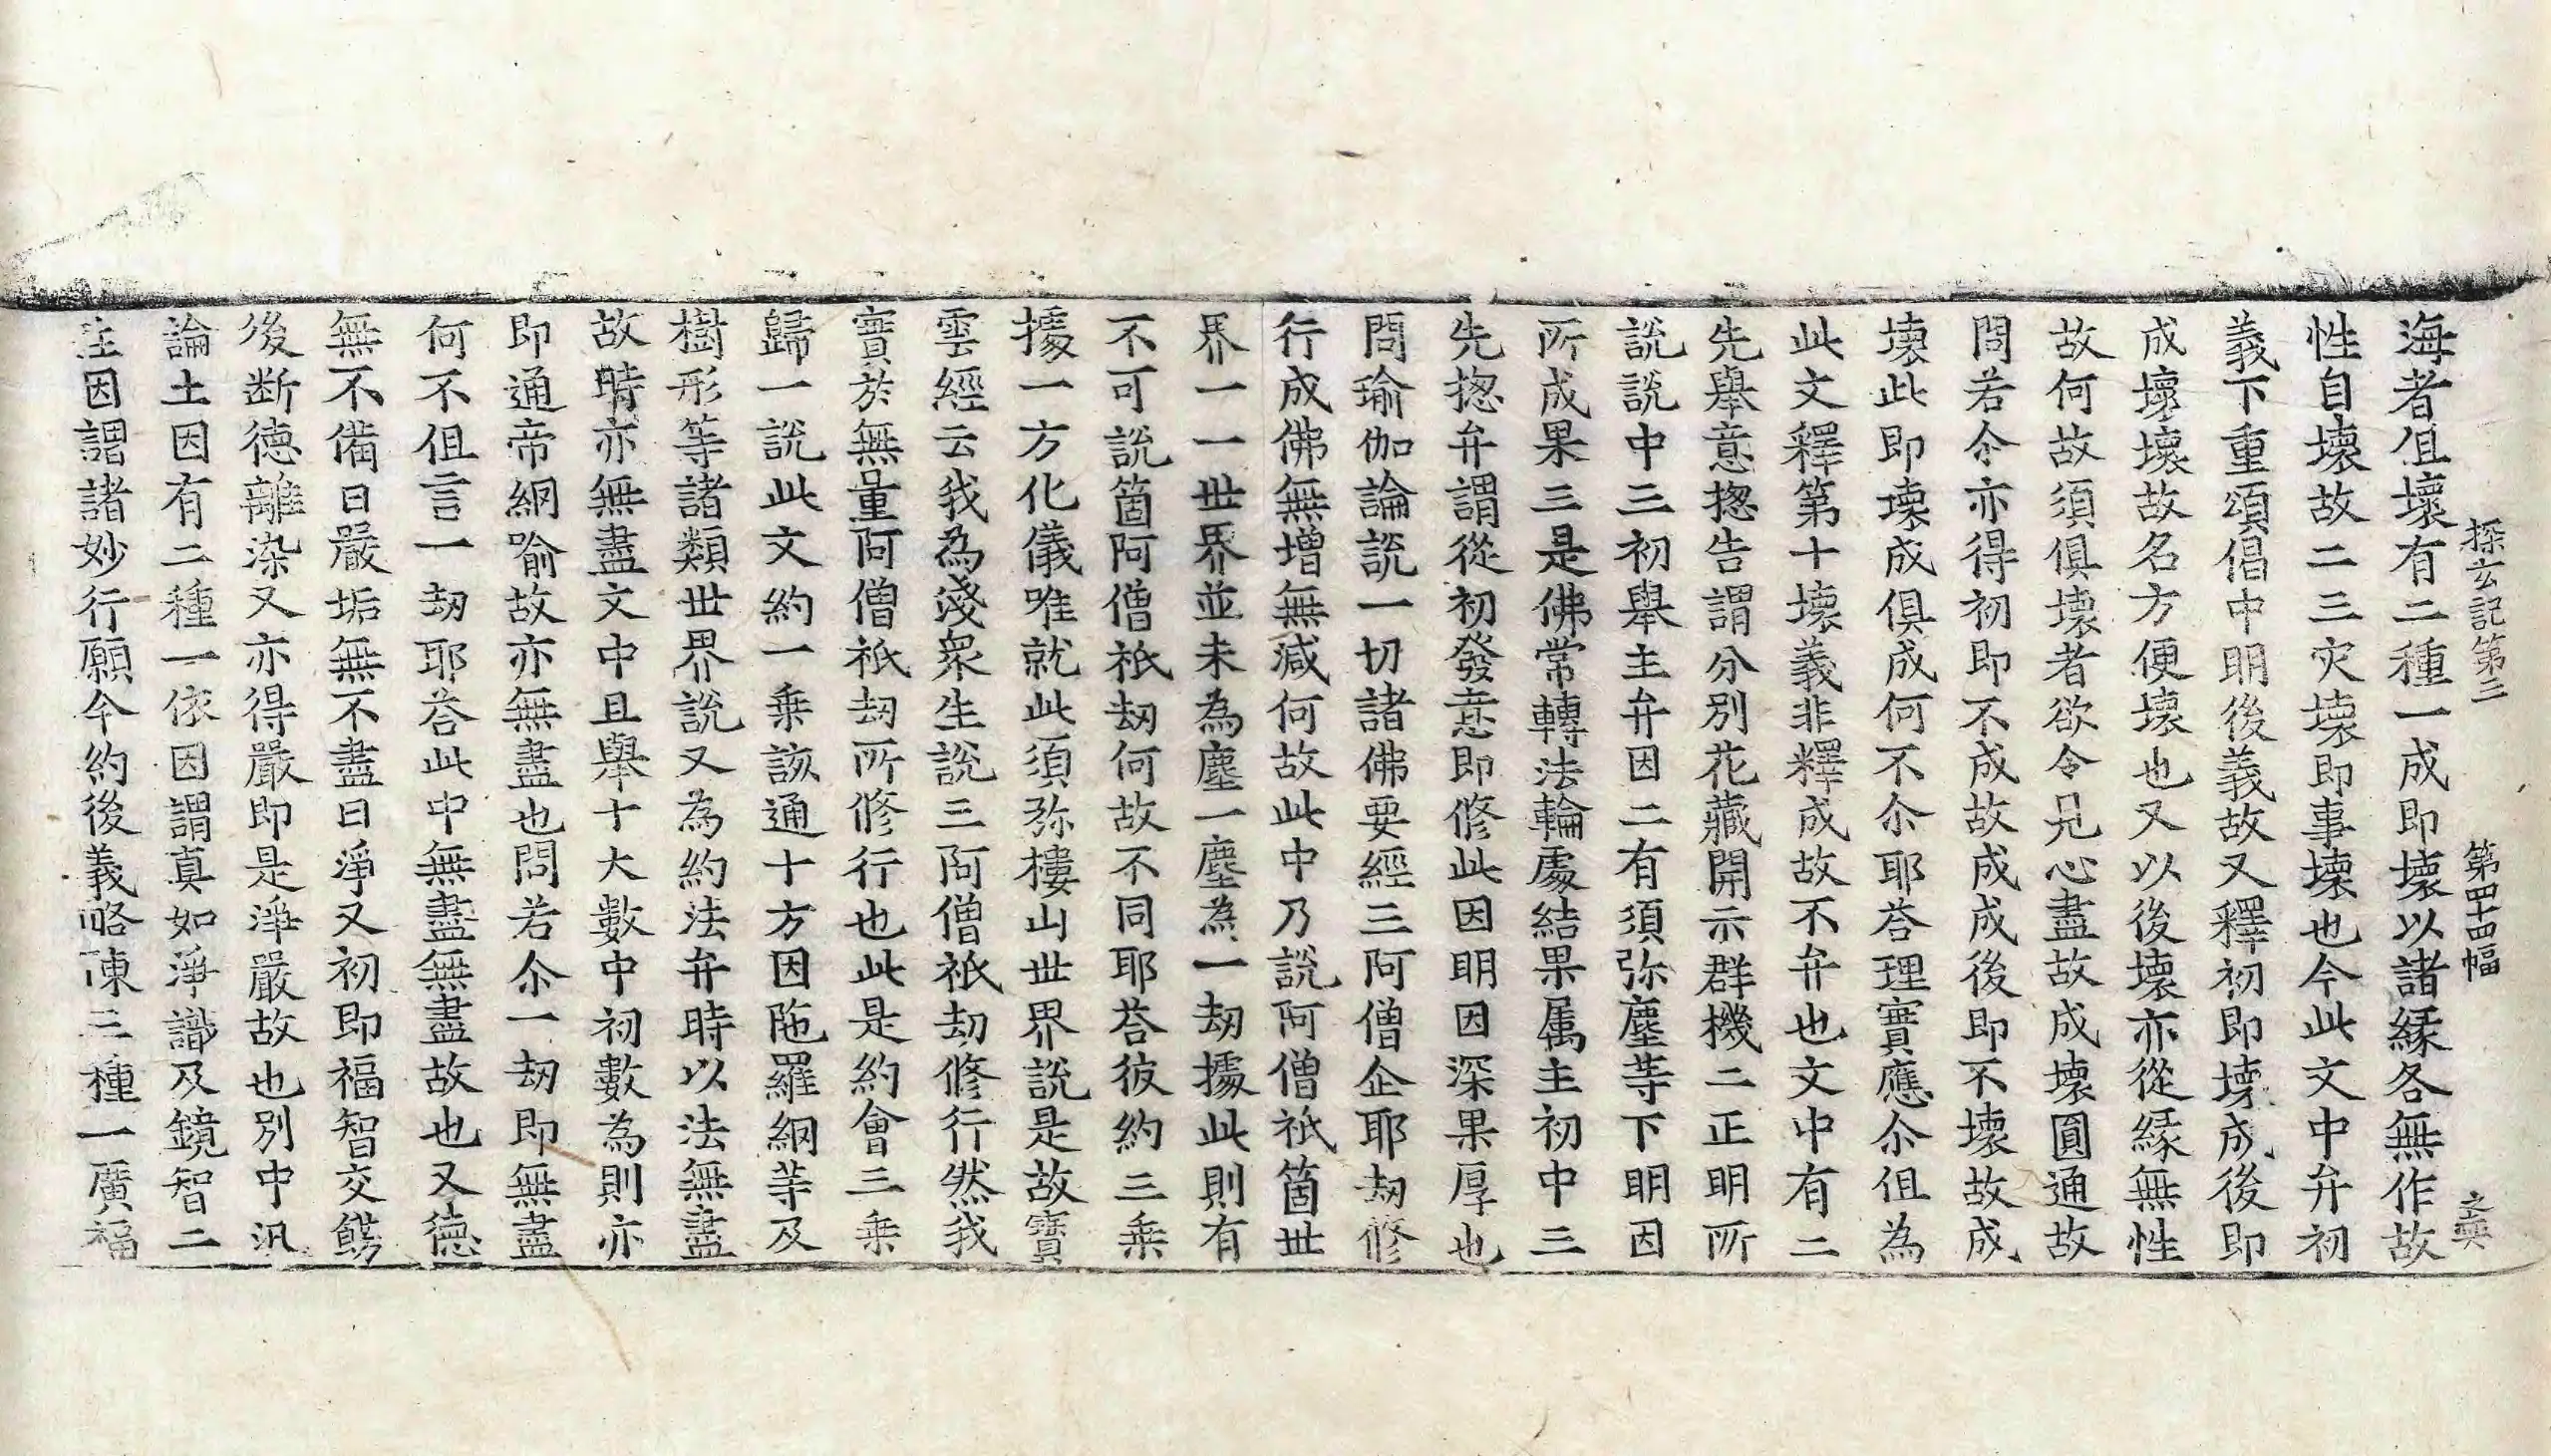 探玄記第三　第四十四幅　之奕
海者但壞有二種一成即壞以諸緣各無作故
性自壞故二三灾壞即事壞也今此文中弁初
義下重頌倡中明後義故又釋初即壞成後即
成壞壞故名方便壞也又以後壞亦從緣無性
故何故須俱壞者欲令見心盡故成壞圓通故
問若尒亦得初即不成故成成後即不壞故成
壞此即壞成俱成何不尒耶荅理實應尒但為
此文釋第十壞義非釋成故不弁也文中有二
先舉意揔告謂分別花藏開示群機二正明所
說說中三初舉主弁因二有須弥塵等下明因
所成果三是佛常轉法輪處結果属主初中三
先揔弁謂從初發意即修此因明因深果厚也
問瑜伽論說一切諸佛要經三阿僧企耶劫修
行成佛無增無減何故此中乃說阿僧祇箇世
界一一世界並未為塵一塵為一劫據此則有
不可說箇阿僧祇劫何故不同耶荅彼約三乗
據一方化儀唯就此須弥樓山世界說是故寶
雲經云我為淺衆生說三阿僧祇劫修行然我
實於無量阿僧祇劫所修行也此是約會三乗
歸一說此文約一乗該通十方因陁羅網等及
樹形等諸類世界說又為約法弁時以法無盡
故時亦無盡文中且舉十大數中初數為則亦
即通帝網喻故亦無盡也問若尒一劫即無盡
何不但言一劫耶荅此中無盡無盡故也又德
無不備曰嚴垢無不盡曰淨又初即福智交餝
後断德離染又亦得嚴即是淨嚴故也別中汎
論土因有二種一依因謂真如淨識及鏡智二
生因謂諸妙行願今約後義略陳三種一廣福